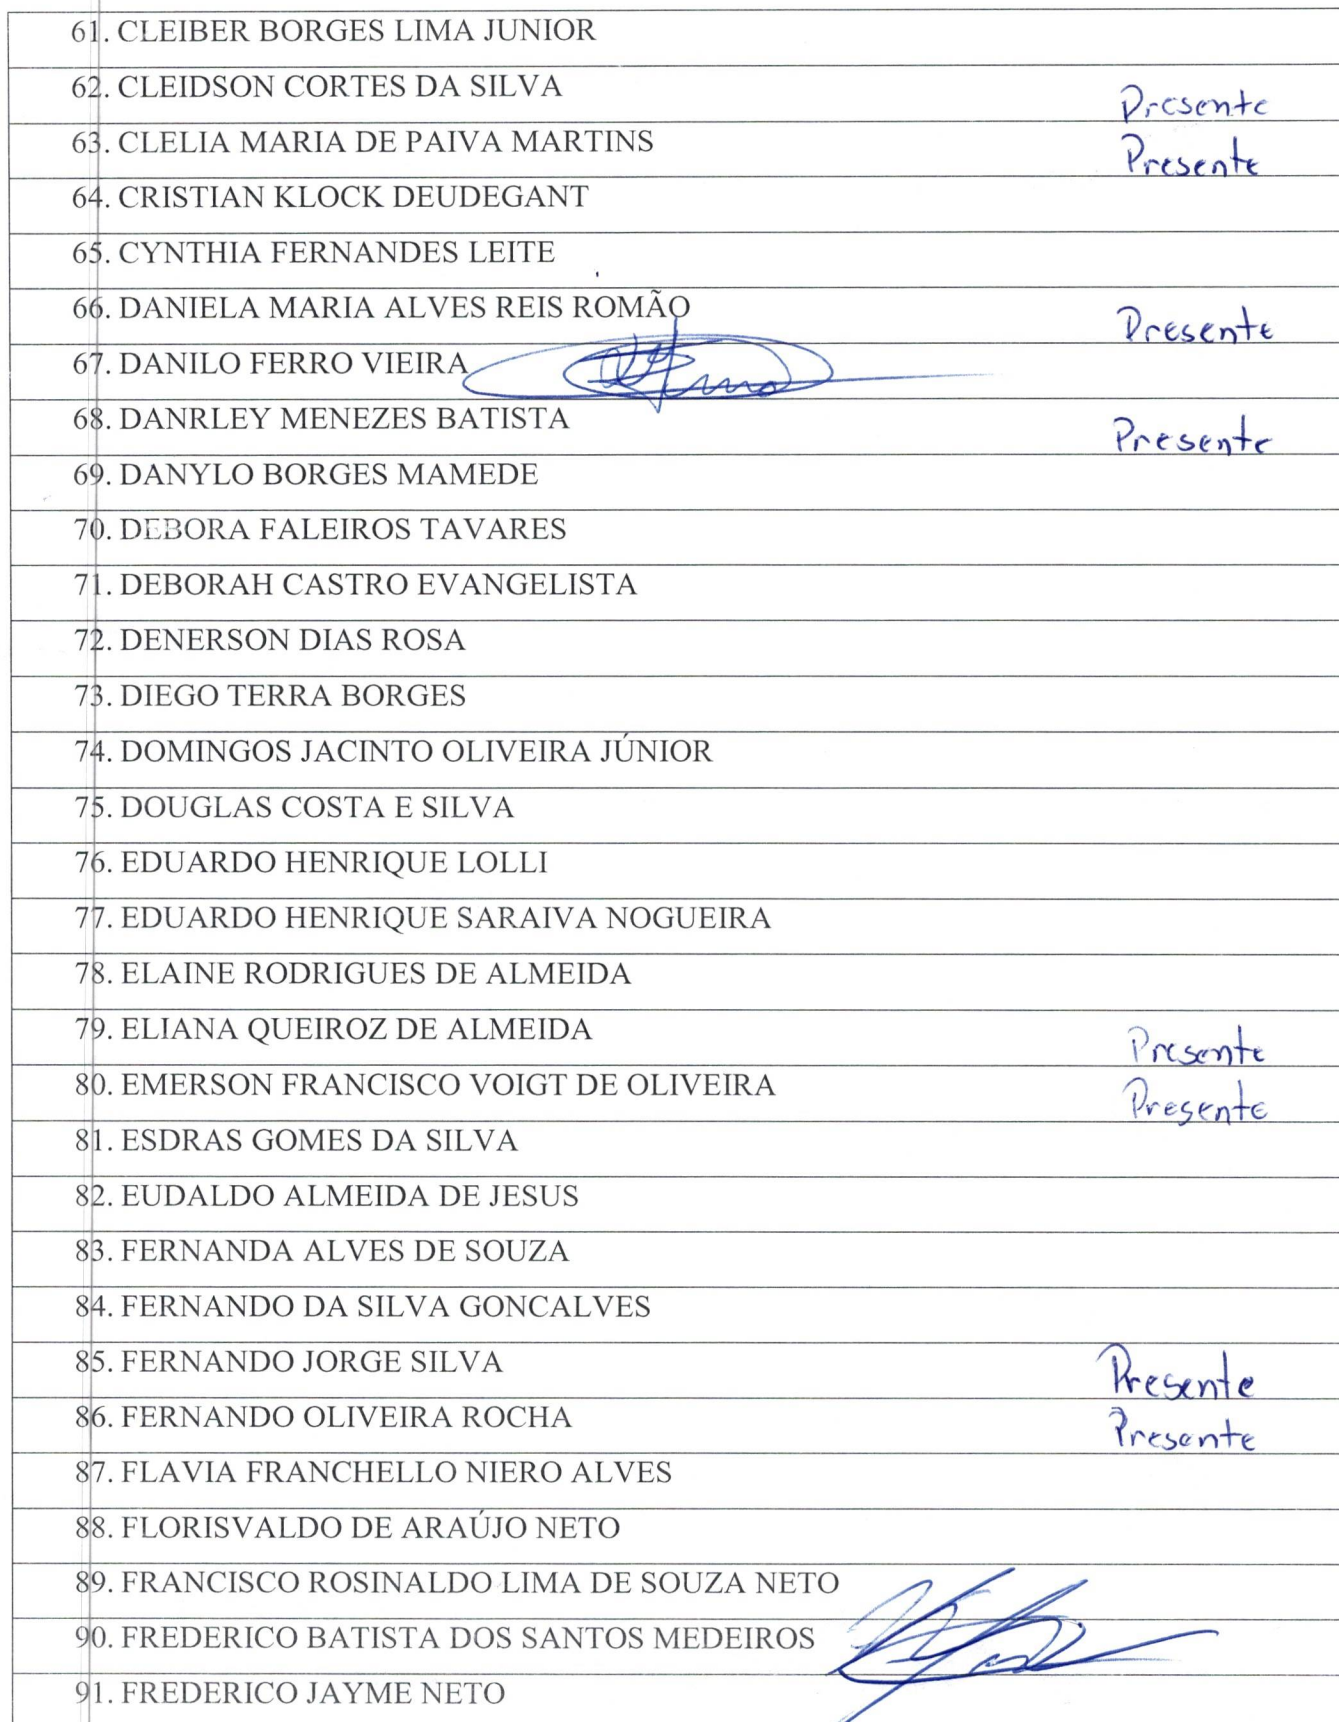 61. CLEIBER BORGES LIMA JUNIOR
62. CLEIDSON CORTES DA SILVA Presente
63. CLELIA MARIA DE PAIVA MARTINS Presente
64. CRISTIAN KLOCK DEUDEGANT
65. CYNTHIA FERNANDES LEITE
66. DANIELA MARIA ALVES REIS ROMÃO Presente
67. DANILO FERRO VIEIRA
68. DANRLEY MENEZES BATISTA Presente
69. DANYLO BORGES MAMEDE
70. DEBORA FALEIROS TAVARES
71. DEBORAH CASTRO EVANGELISTA
72. DENERSON DIAS ROSA
73. DIEGO TERRA BORGES
74. DOMINGOS JACINTO OLIVEIRA JÚNIOR
75. DOUGLAS COSTA E SILVA
76. EDUARDO HENRIQUE LOLLI
77. EDUARDO HENRIQUE SARAIVA NOGUEIRA
78. ELAINE RODRIGUES DE ALMEIDA
79. ELIANA QUEIROZ DE ALMEIDA Presente
80. EMERSON FRANCISCO VOIGT DE OLIVEIRA Presente
81. ESDRAS GOMES DA SILVA
82. EUDALDO ALMEIDA DE JESUS
83. FERNANDA ALVES DE SOUZA
84. FERNANDO DA SILVA GONCALVES
85. FERNANDO JORGE SILVA Presente
86. FERNANDO OLIVEIRA ROCHA Presente
87. FLAVIA FRANCHELLO NIERO ALVES
88. FLORISVALDO DE ARAÚJO NETO
89. FRANCISCO ROSINALDO LIMA DE SOUZA NETO
90. FREDERICO BATISTA DOS SANTOS MEDEIROS
91. FREDERICO JAYME NETO